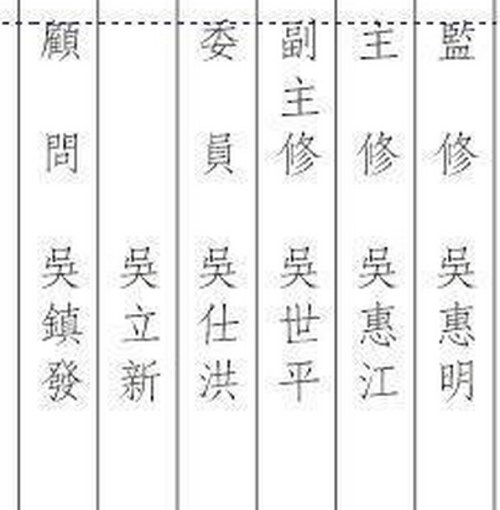 監修 吳惠明
主修 吳惠江
副主修 吳世平
委員 吳仕洪
吳立新
顧問 吳鎮發